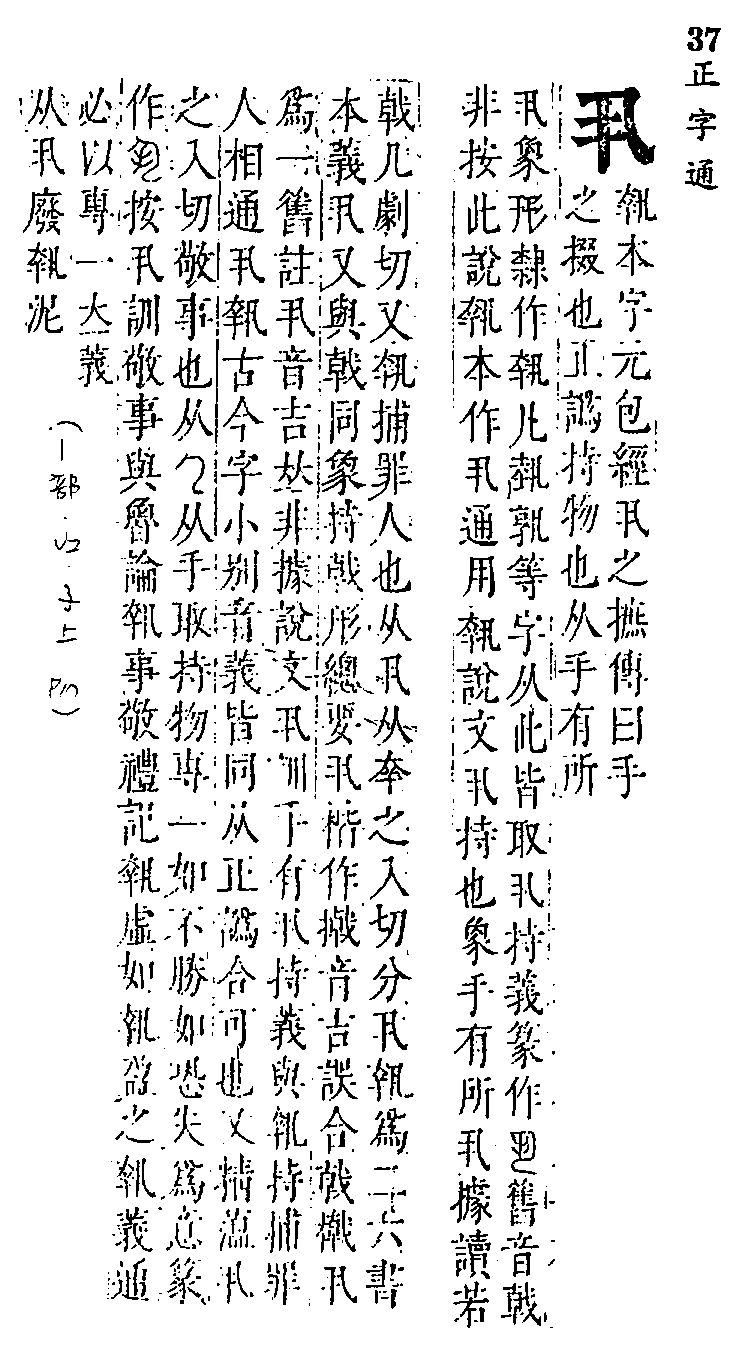 37正字通
丮
執本字元包經丮之撫傳曰手
之掇也正譌持物也从手有所
丮象形隸作執凡孰等字从此皆取丮持義篆作舊音戟
非按此說執本作丮通用執說文丮持也象手有所丮據讀若
戟几劇切又執捕罪人也从丮从㚔之入切分丮執爲二六書
本義丮又與戟同象持戟形總要丮楷作撠音吉誤合戟撠丮
爲一舊註丮音吉夶非據說文丮訓手有丮持義與執持捕罪
人相通丮執古今字小別音義皆同从正譌合可也又精薀丮
之入切敬事也从从手取持物專一如不勝如恐失爲意篆
作按丮訓敬事與魯論執事敬禮記執虛如執盈之執義通
必以專一大義
从丮廢執泥